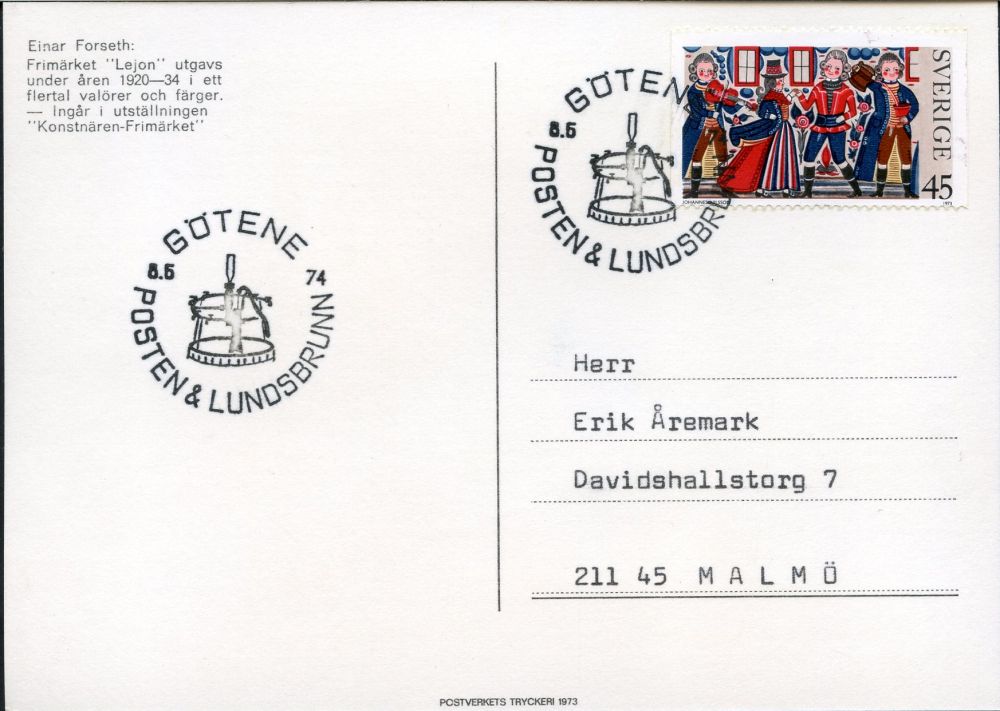 Einar Forseth:
Frimärket "Lejon" utgavs
under åren 1920—34 i ett
flertal valörer och färger.
— Ingår i utställningen
"Konstnären-Frimärket"
GÖTENE
8.5 74
POSTEN & LUNDSBRUNN
GÖTENE
8.5 74
POSTEN & LUNDSBRUNN
SVERIGE
45
1973
Herr
Erik Åremark
Davidshallstorg 7
211 45 MALMÖ
POSTVERKETS TRYCKERI 1973